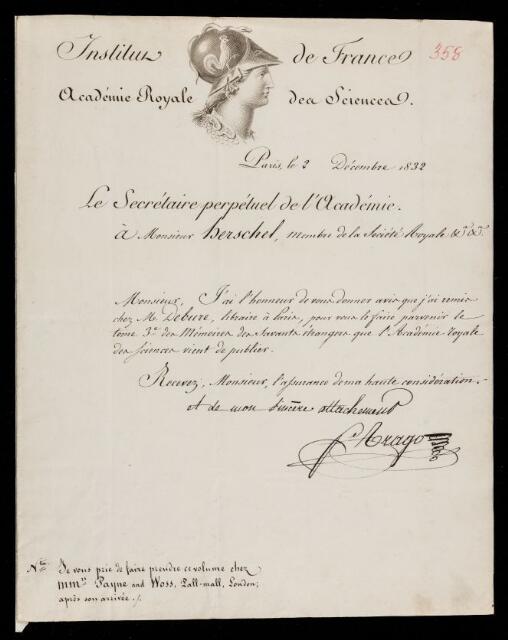 Institut de France
358
Académie Royale des Sciences.
Paris, le 2 Décembre 1832
Le Secrétaire perpétuel de l'Académie.
à Monsieur Herschel, membre de la Société Royale &ª &ª.
Monsieur, J'ai l'honneur de vous donner avis que j'ai remis
chez M. Debure, libraire à Paris, pour vous le faire parvenir le
tome 3e des Mémoires des Savants étrangers que l'Académie royale
des sciences vient de publier.
Recevez, Monsieur, l'assurance de ma haute considération.
et de mon sincère attachement
f. Arago
Nta Je vous prie de faire prendre ce volume chez
MMrs Payne and Woss, Pall-mall, London;
après son arrivée ./.